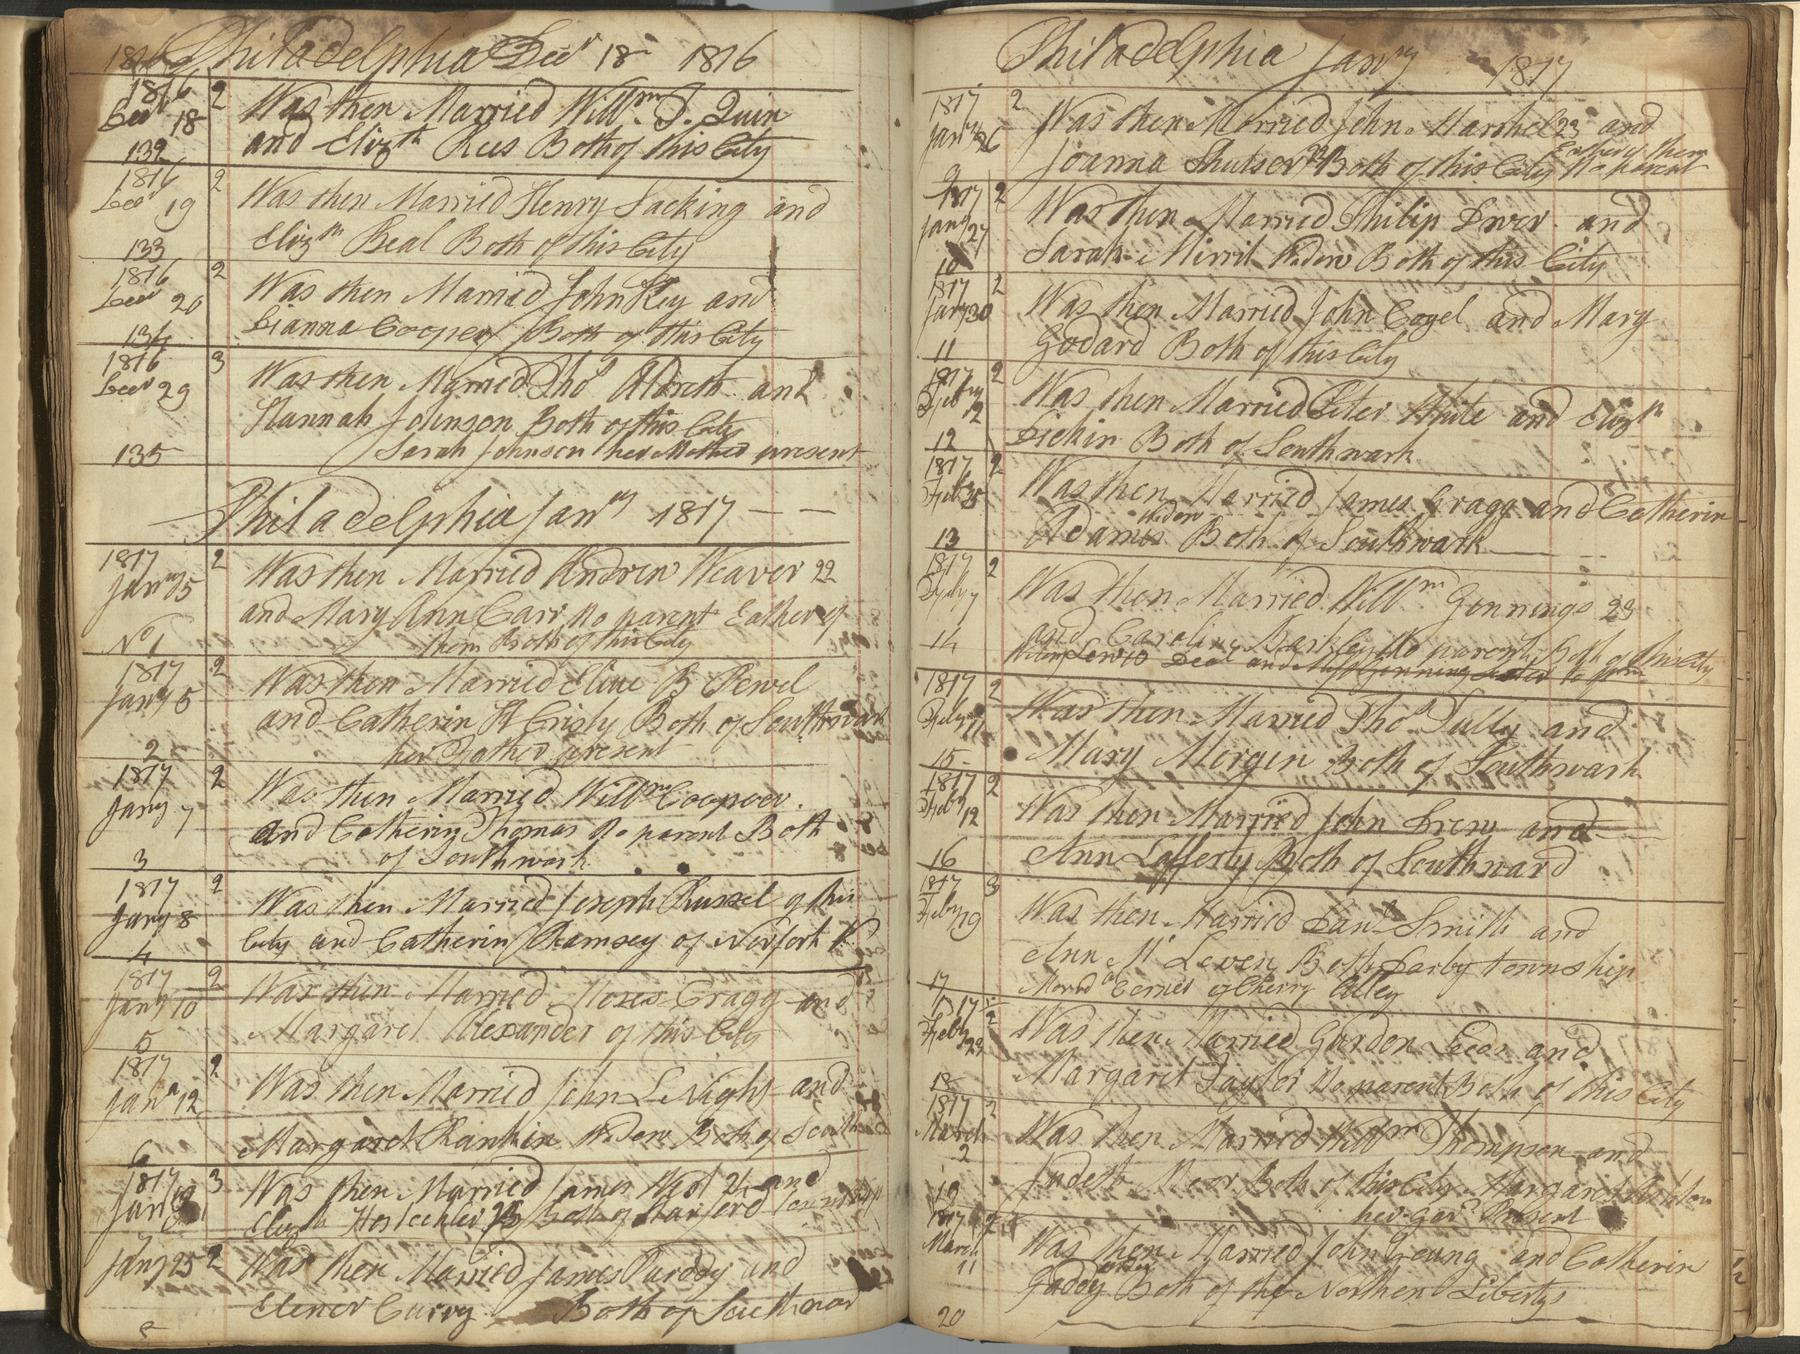 1816 Philadelphia Decr 18 1816
1816 2 Was then Married Willm J. Quin
Decr 18 and Elizth Rees Both of this City
132
1816 2 Was then Married Henry Sacking and
Decr 19 Elizth Beal Both of this City
133
1816 2 Was then Married John Key and
Decr 20 Cooper Both of this City
134
1816 3 Was then Married Thos Aldreth and
Decr 29 Hannah Johnson Both of this City
135 Sarah Johnson her Mother present
Philadelphia Janry 1817
1817 2 Was then Married Andrew Weaver 22
Janry 5 and Mary Ann Carr No parent Eather of
No 1 them Both of this City
1817 2 Was then Married B Pewel
Jany 5 and Catherin Both of Southwark
2 her Father present
1817 2 Was then Married Willm Coopoer
Jany 7 and Catherin Thomas No parent Both
3 of Southwark
1817 2 Was then Married Joseph Russel of this
Jany 8 City and Catherin Ramsey of Norfork
4
1817 2 Was then Married Moses Cragg and
Jany 10 Margaret Alexander of this City
5
1817 2 Was then Married John and
Jany 12 Margaret Rankin Widow Both of South
6
1817 3 Was then Married James 24 and
Jany Both of
Jany 25 2 Was then Married James Purddy and
Elener Curry Both of Southwar
8
Philadelphia Janry 1817
1817 2 Was then Married John 23 and
Janry 26 Joanna Both of this City Eather of them No parent
9
1817 2 Was then Married Philip Dwer and
Jany 27 Sarah Mirril Widow Both of this City
10
1817 2 Was then Married John Cogel and Mary
Jany 30 Godard Both of this City
11
1817 2 Was then Married Peter White and Elizth
Feb 2 Dickin Both of Southwark
12
1817 2 Was then Married James Cragg and Catherin
Feb 5 Adames Widow Both of Southwark
13
1817 2 Was then Married Willm Gennings 23
Feby 7 and Caroline Barkley No parent Both of this City
14 Lewis Deal and
1817 2 Was then Married Thos Tully and
Feby 11 Mary Morgin Both of Southwark
15
1817 2 Was then Married John Drew and
Feby 12 Ann Lafferty Both of Southward
16
1817 3 Was then Married Danl Smith and
Feby 19 Ann Mc Leven Both Darby township
17 of Cherry Alley
1817 2 Was then Married Gordon Leeds and
Feby 23 Margaret Taylor No parent Both of this City
18
1817 2 Was then Married Willm Thompson and
March 2 Judeth Moor Both of this City Margaret
19 her Present
1817 2 Was then Married John Young and Catherin
March 11 Both of the Northen Libertys
20